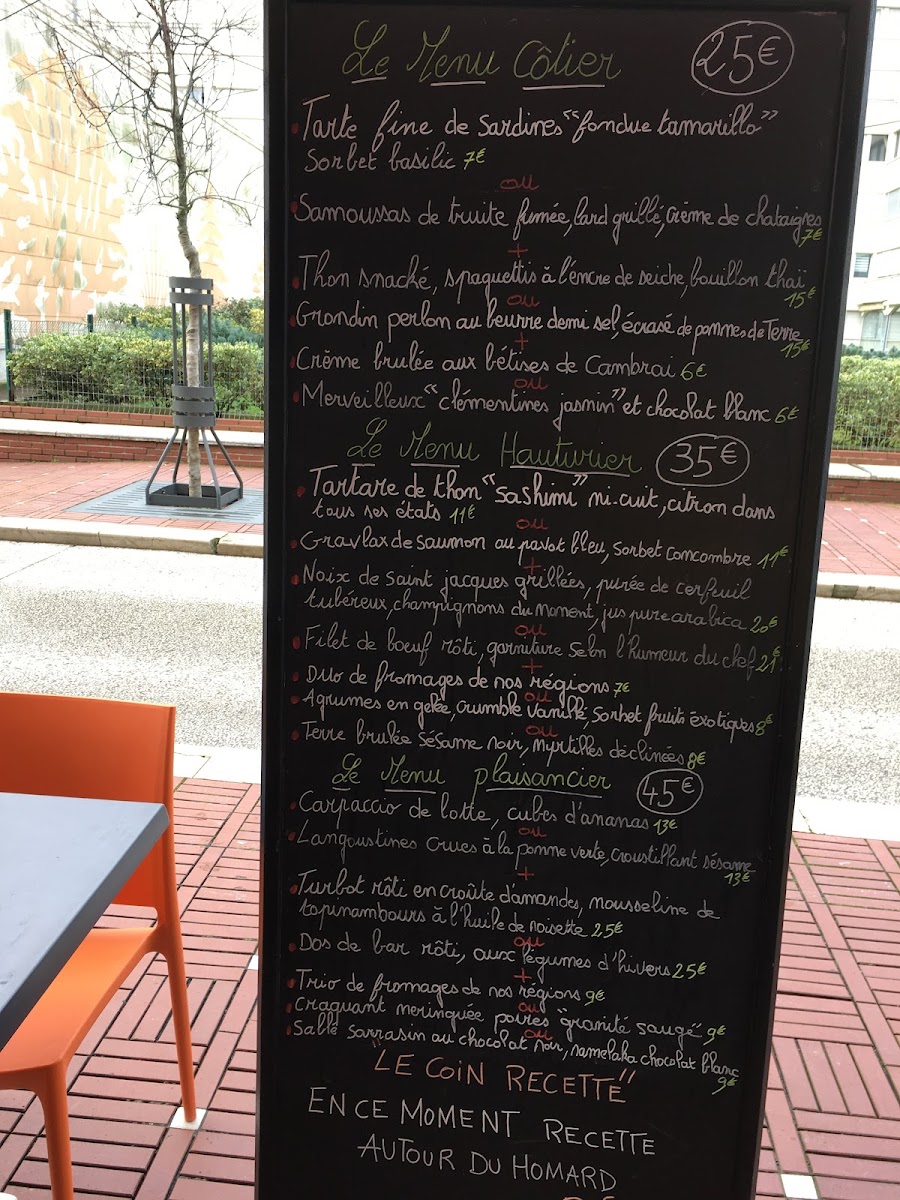 Le Menu Côtier 25€
Tarte fine de sardines "fondue tamarillo"
sorbet basilic 7€
ou
Samoussas de truite fumée, lard grillé, crème de chataignes
7€
+
Thon snacké, spaguettis à l'encre de seiche, bouillon thaï
15€
ou
Grondin perlon au beurre demi sel, écrasé de pommes de Terre
15€
+
Crème brulée aux bétises de Cambrai 6€
ou
Merveilleux "clémentines jasmin" et chocolat blanc 6€
Le Menu Hauturier 35€
Tartare de thon "sashimi" mi-cuit, citron dans
tous ses états 11€
ou
Gravlax de saumon au pavot bleu, sorbet concombre 11€
+
Noix de saint jacques grillées, purée de cerfeuil
tubéreux, champignons du moment, jus pure arabica 20€
ou
Filet de boeuf rôti, garniture selon l'humeur du chef 21€
+
Duo de fromages de nos régions 7€
ou
Agrumes en gelée, crumble vanille sorbet fruits éxotiques 8€
ou
Terre brulée sésame noir, myrtilles déclinées 8€
Le Menu plaisancier 45€
Carpaccio de lotte, cubes d'ananas 13€
ou
Langoustines crues à la pomme verte, croustillant sésame
13€
+
Turbot rôti en croûte d'amandes, mousseline de
topinambours à l'huile de noisette 25€
ou
Dos de bar rôti, aux légumes d'hivers 25€
+
Trio de fromages de nos régions 9€
ou
Craquant meringuée poires "granité sauge" 9€
ou
Sablé sarrasin au chocolat noir, namelaka chocolat blanc
9€
"LE COIN RECETTE"
EN CE MOMENT RECETTE
AUTOUR DU HOMARD